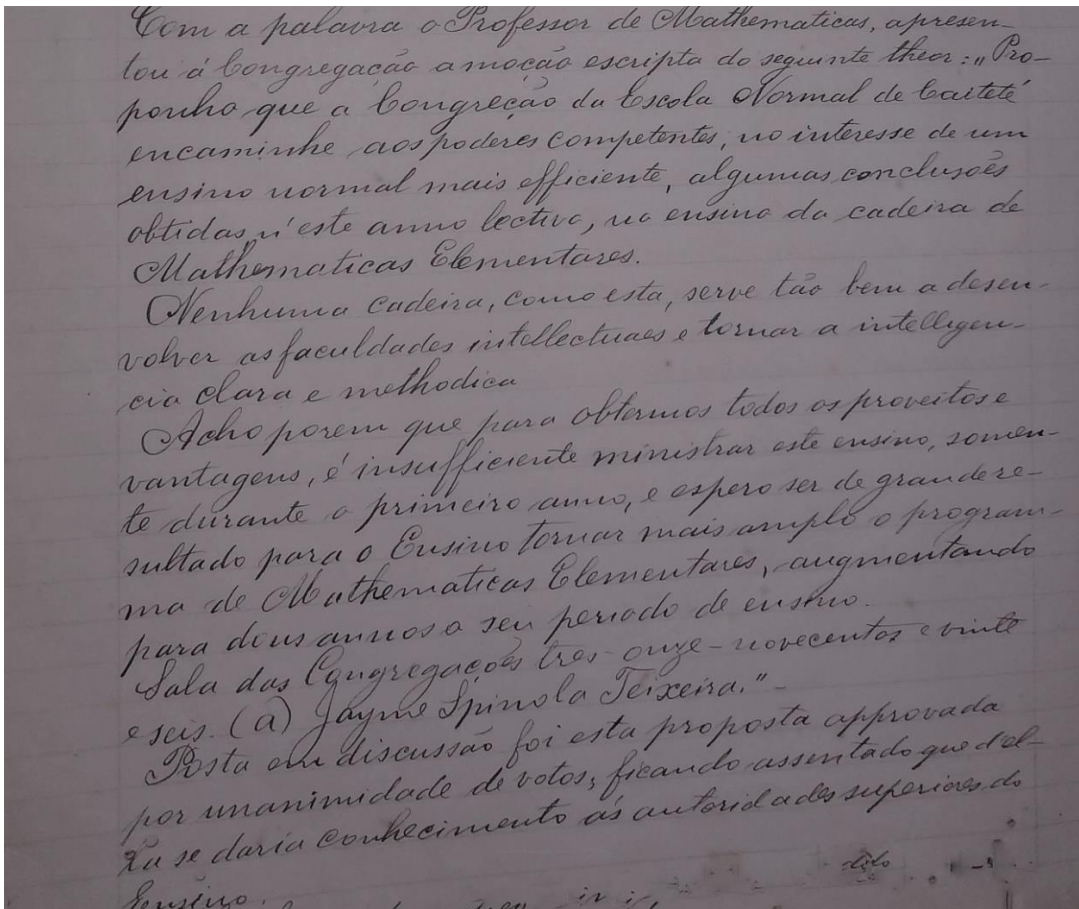 Com a palavra o Professor de Mathematicas, apresen-
tou á Congregação a moção escripta do seguinte theor: „Pro-
ponho que a Congreção da Escola Normal de Caiteté
encaminhe aos poderes competentes, no interesse de um
ensino normal mais efficiente, algumas conclusões
obtidas, n'este anno lectivo, no ensino da cadeira de
Mathematicas Elementares.
Nenhuma cadeira, como esta, serve tão bem a desen-
volver as faculdades intellectuaes e tornar a intelligen-
cia clara e methodica
Acho porem que para obtermos todos os proveitos e
vantagens, é insufficiente ministrar este ensino, somen-
te durante o primeiro anno, e espero ser de grande re-
sultado para o Ensino tornar mais amplo o program-
ma de Mathematicas Elementares, augmentando
para dous annos o seu periodo de ensino.
Sala das Congregações tres-onze-novecentos e vinte
e seis. (a) Jayme Spinola Teixeira."-
Posta em discussão foi esta proposta approvada
por unanimidade de votos, ficando assentado que d'el-
la se daria conhecimento ás autoridades superiores do
Ensino.